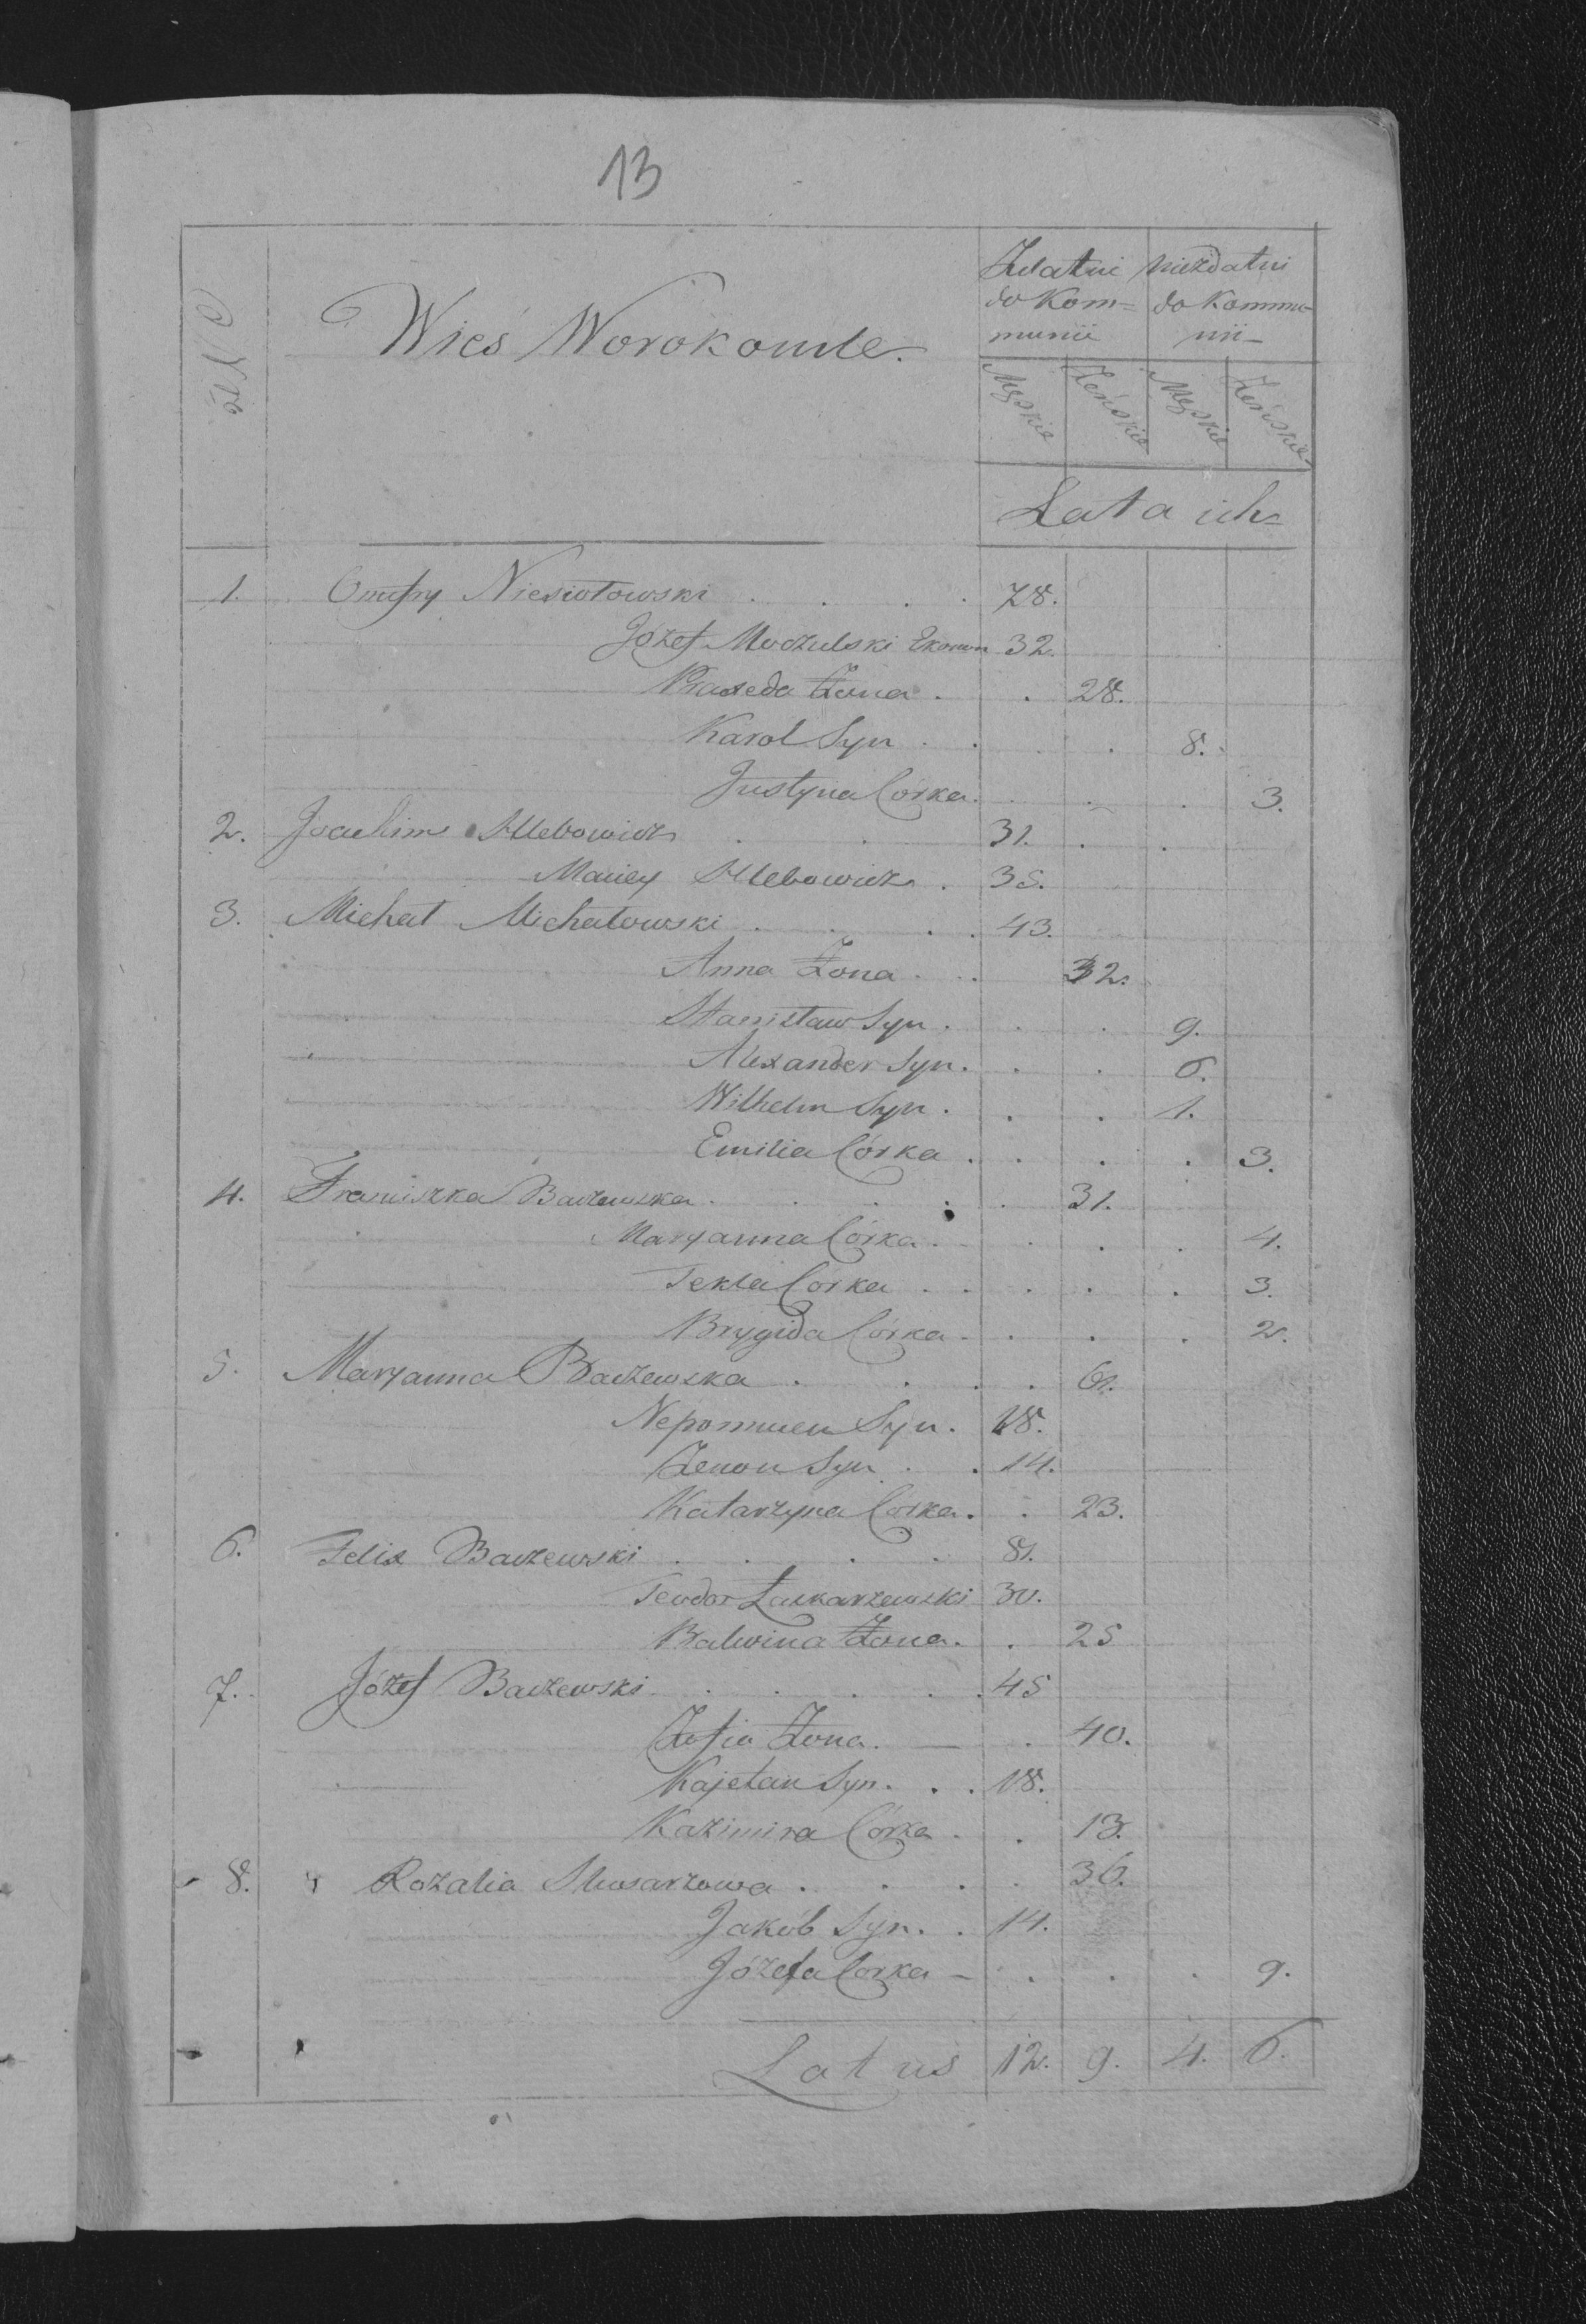 13
№
Wieś Worokomle.
Zdatni do Kommunii
niezdatni do Kommunii
Męskie Żeńskie Męskie Żeńskie
Lata ich
1. Onufry Niesiołowski 78.
Józef Moczulski Ekonom 32.
Praxeda Żona 28.
Karol Syn 8.
Justyna Córka 3.
2. Joachim Hlebowicz 31.
Maciey Hlebowicz 35.
3. Michał Michałowski 43.
Anna Żona 32.
Stanisław Syn 9.
Alexander Syn 6.
Wilhelm Syn 1.
Emilia Córka 3.
4. Franciszka Baczewska 31.
Maryanna Córka 4.
Tekla Córka 3.
Brygida Córka 2.
5. Maryanna Baczewska 61.
Nepomucen Syn 18.
Zenon Syn 14.
Katarzyna Córka 23.
6. Felix Baczewski 81.
Teodor Łaskarzewski 30.
Balwina Żona 25
7. Józef Baczewski 45
Zofia Żona 40.
Kajetan Syn 18.
Kazimira Córka 13.
8. Rozalia Slusarzowa 36.
Jakób Syn 14.
Józefa Córka 9.
Latus 12. 9. 4. 6.